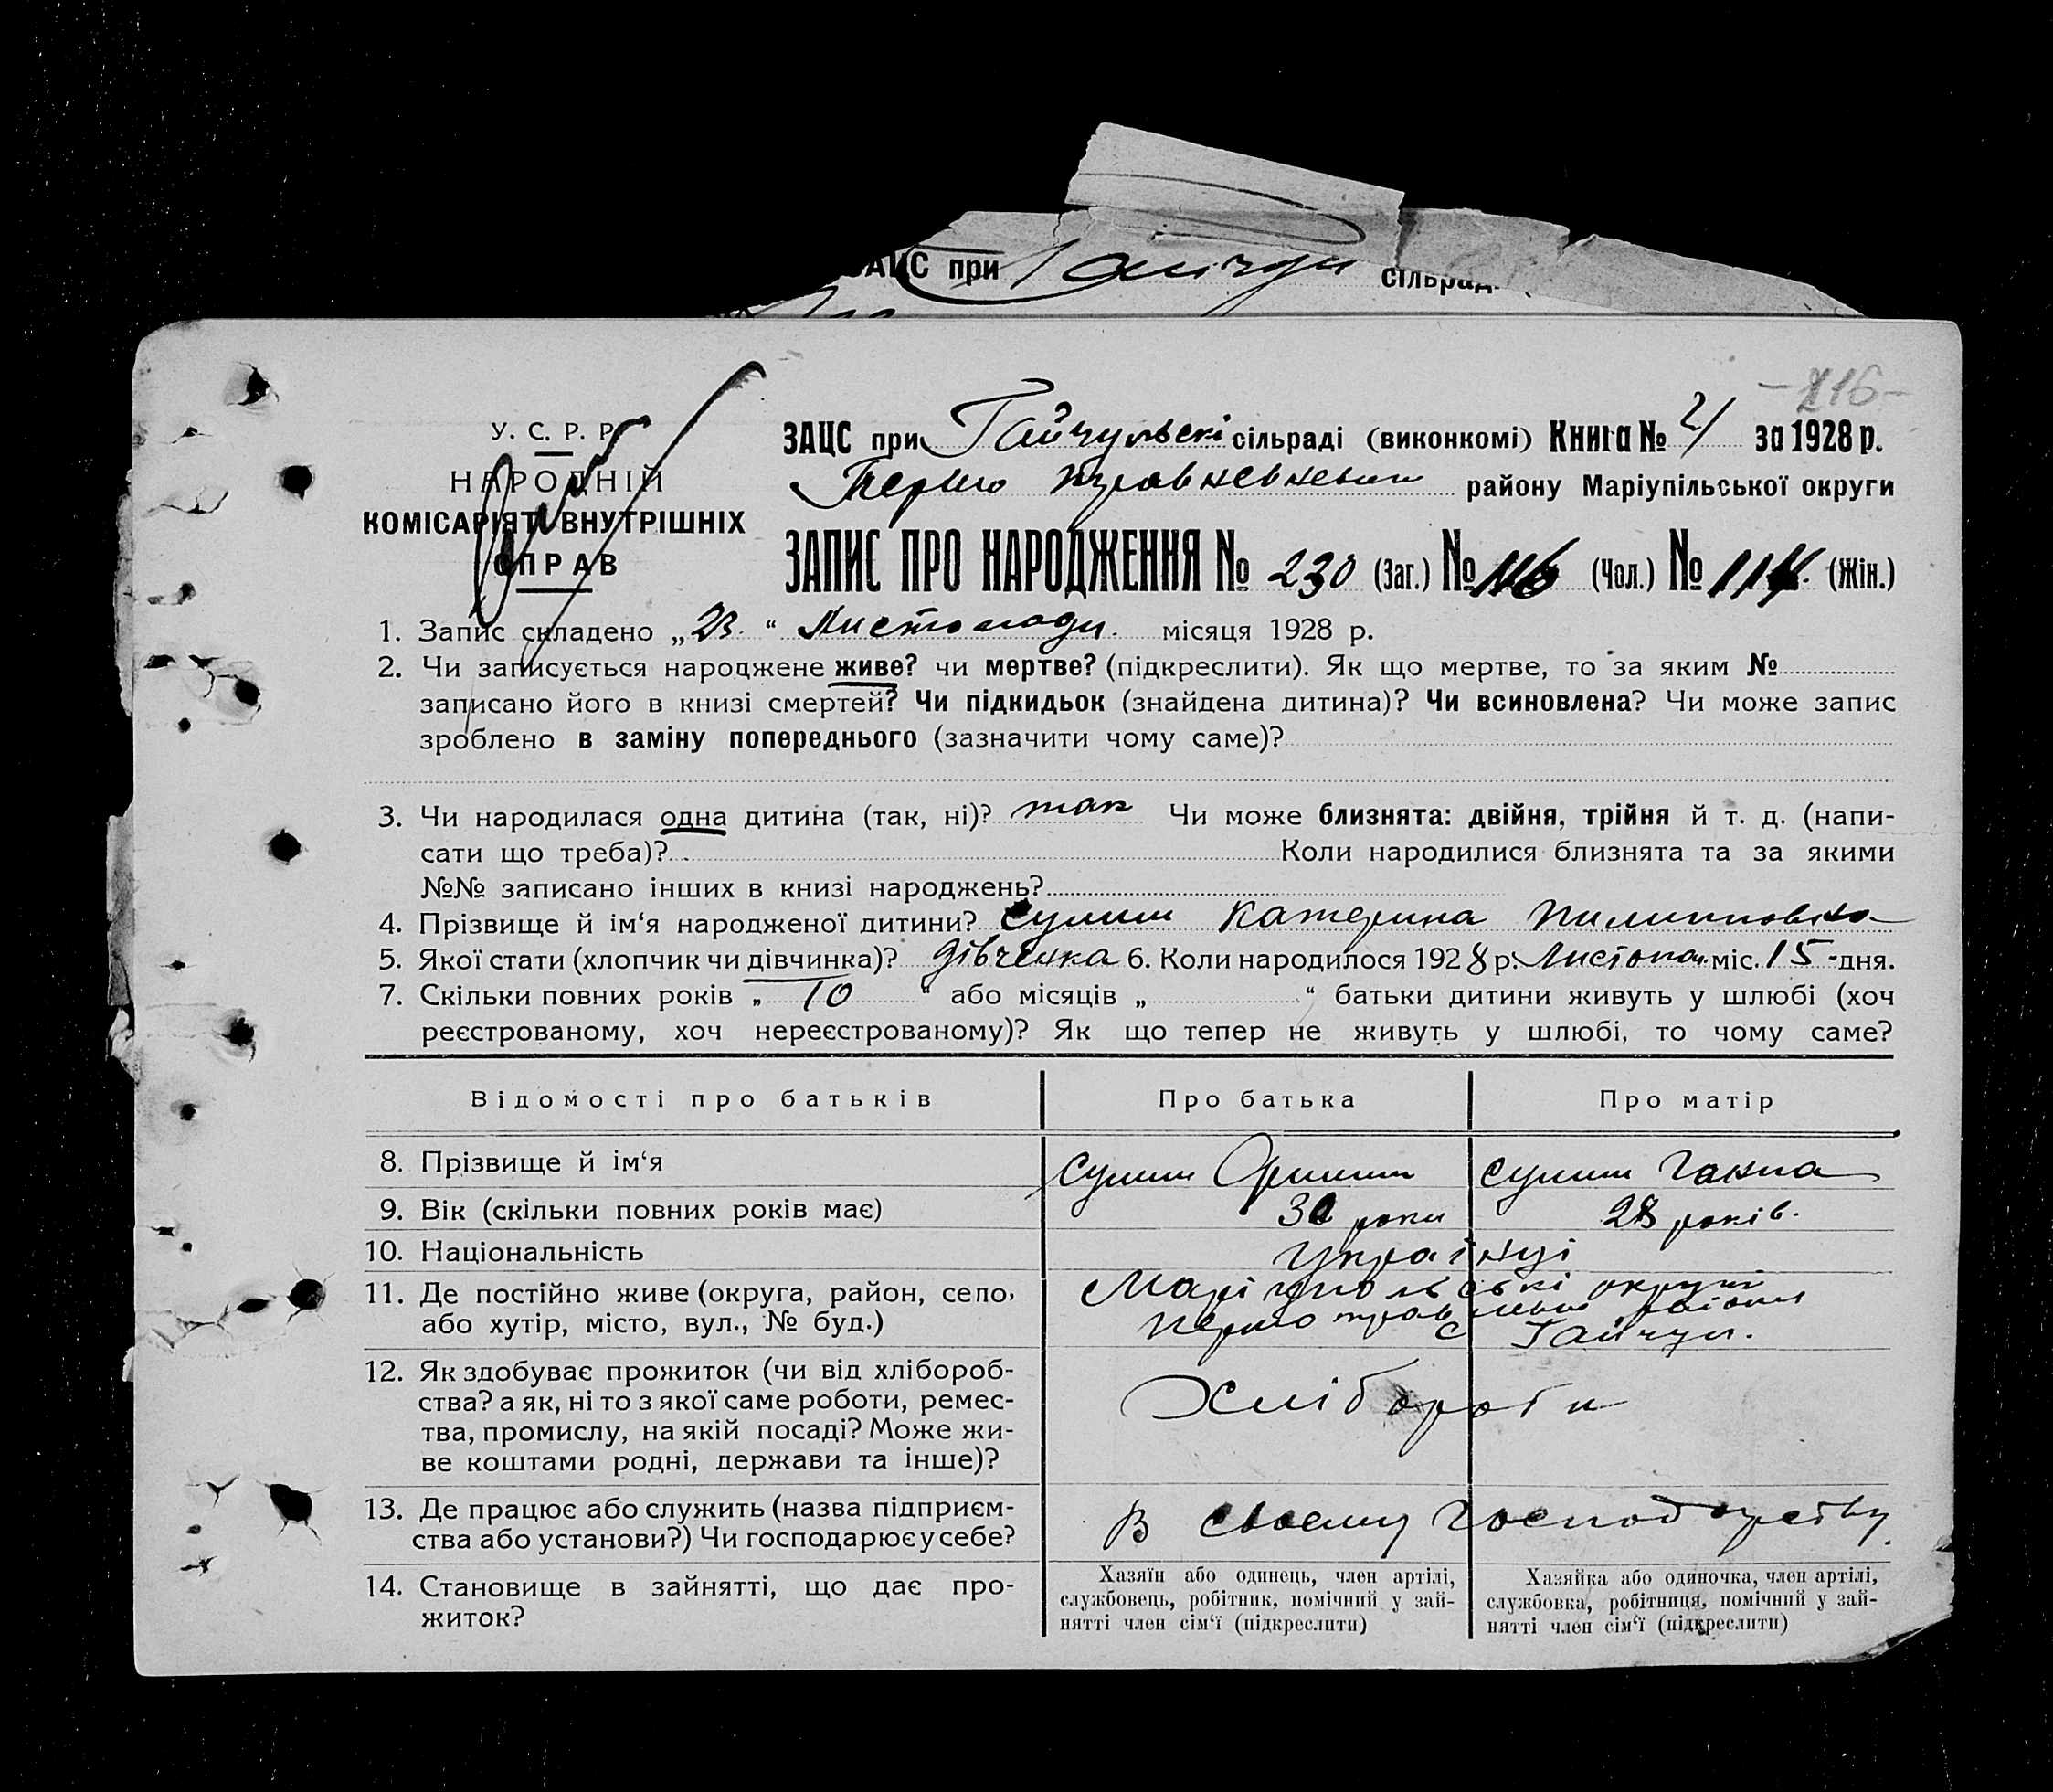 ЗАЦС при Гайчул сільрад
-216-
У. С. Р. Р.
НАРОДНІЙ
КОМІСАРІЯТ ВНУТРІШНІХ
СПРАВ
ЗАЦС при Гайчульскі сільраді (виконкомі) Книга № за 1928 р.
району Маріупільської округи
ЗАПИС ПРО НАРОДЖЕННЯ № 230 (Заг.) № 116 (Чол.) № 114 (Жін.)
1. Запис складено „23“ Листопада місяця 1928 р.
2. Чи записується народжене живе? чи мертве? (підкреслити). Як що мертве, то за яким №
записано його в книзі смертей? Чи підкидьок (знайдена дитина)? Чи всиновлена? Чи може запис
зроблено в заміну попереднього (зазначити чому саме)?
3. Чи народилася одна дитина (так, ні)? так Чи може близнята: двійня, трійня й т. д. (напи-
сати що треба)? Коли народилися близнята та за якими
№№ записано інших в книзі народжень?
4. Прізвище й ім‘я народженої дитини? Сулим Катерина Пилиповна
5. Якої стати (хлопчик чи дівчинка)? дівчинка 6. Коли народилося 1928 р. Листопад міс. 15 дня.
7. Скільки повних років „ 10 “ або місяців „ “ батьки дитини живуть у шлюбі (хоч
реєстрованому, хоч нереєстрованому)? Як що тепер не живуть у шлюбі, то чому саме?
Відомості про батьків Про батька Про матір
8. Прізвище й ім‘я Сулим Сулим Ганна
9. Вік (скільки повних років має) роки 28 років.
10. Національність Українці
11. Де постійно живе (округа, район, село, Маріупольскі округи
або хутір, місто, вул., № буд.) с Гайчул.
12. Як здобуває прожиток (чи від хлібороб-
ства? а як, ні то з якої саме роботи, ремес- Хлібороби
тва, промислу, на якій посаді? Може жи-
ве коштами родні, держави та інше)?
13. Де працює або служить (назва підприєм- В своему господарству.
ства або установи?) Чи господарює у себе?
14. Становище в зайнятті, що дає про-
житок?
Хазяїн або одинець, член артілі,
службовець, робітник, помічний у зай-
нятті член сім‘ї (підкреслити)
Хазяйка або одиночка, член артілі,
службовка, робітниця, помічний у зай-
нятті член сім‘ї (підкреслити)